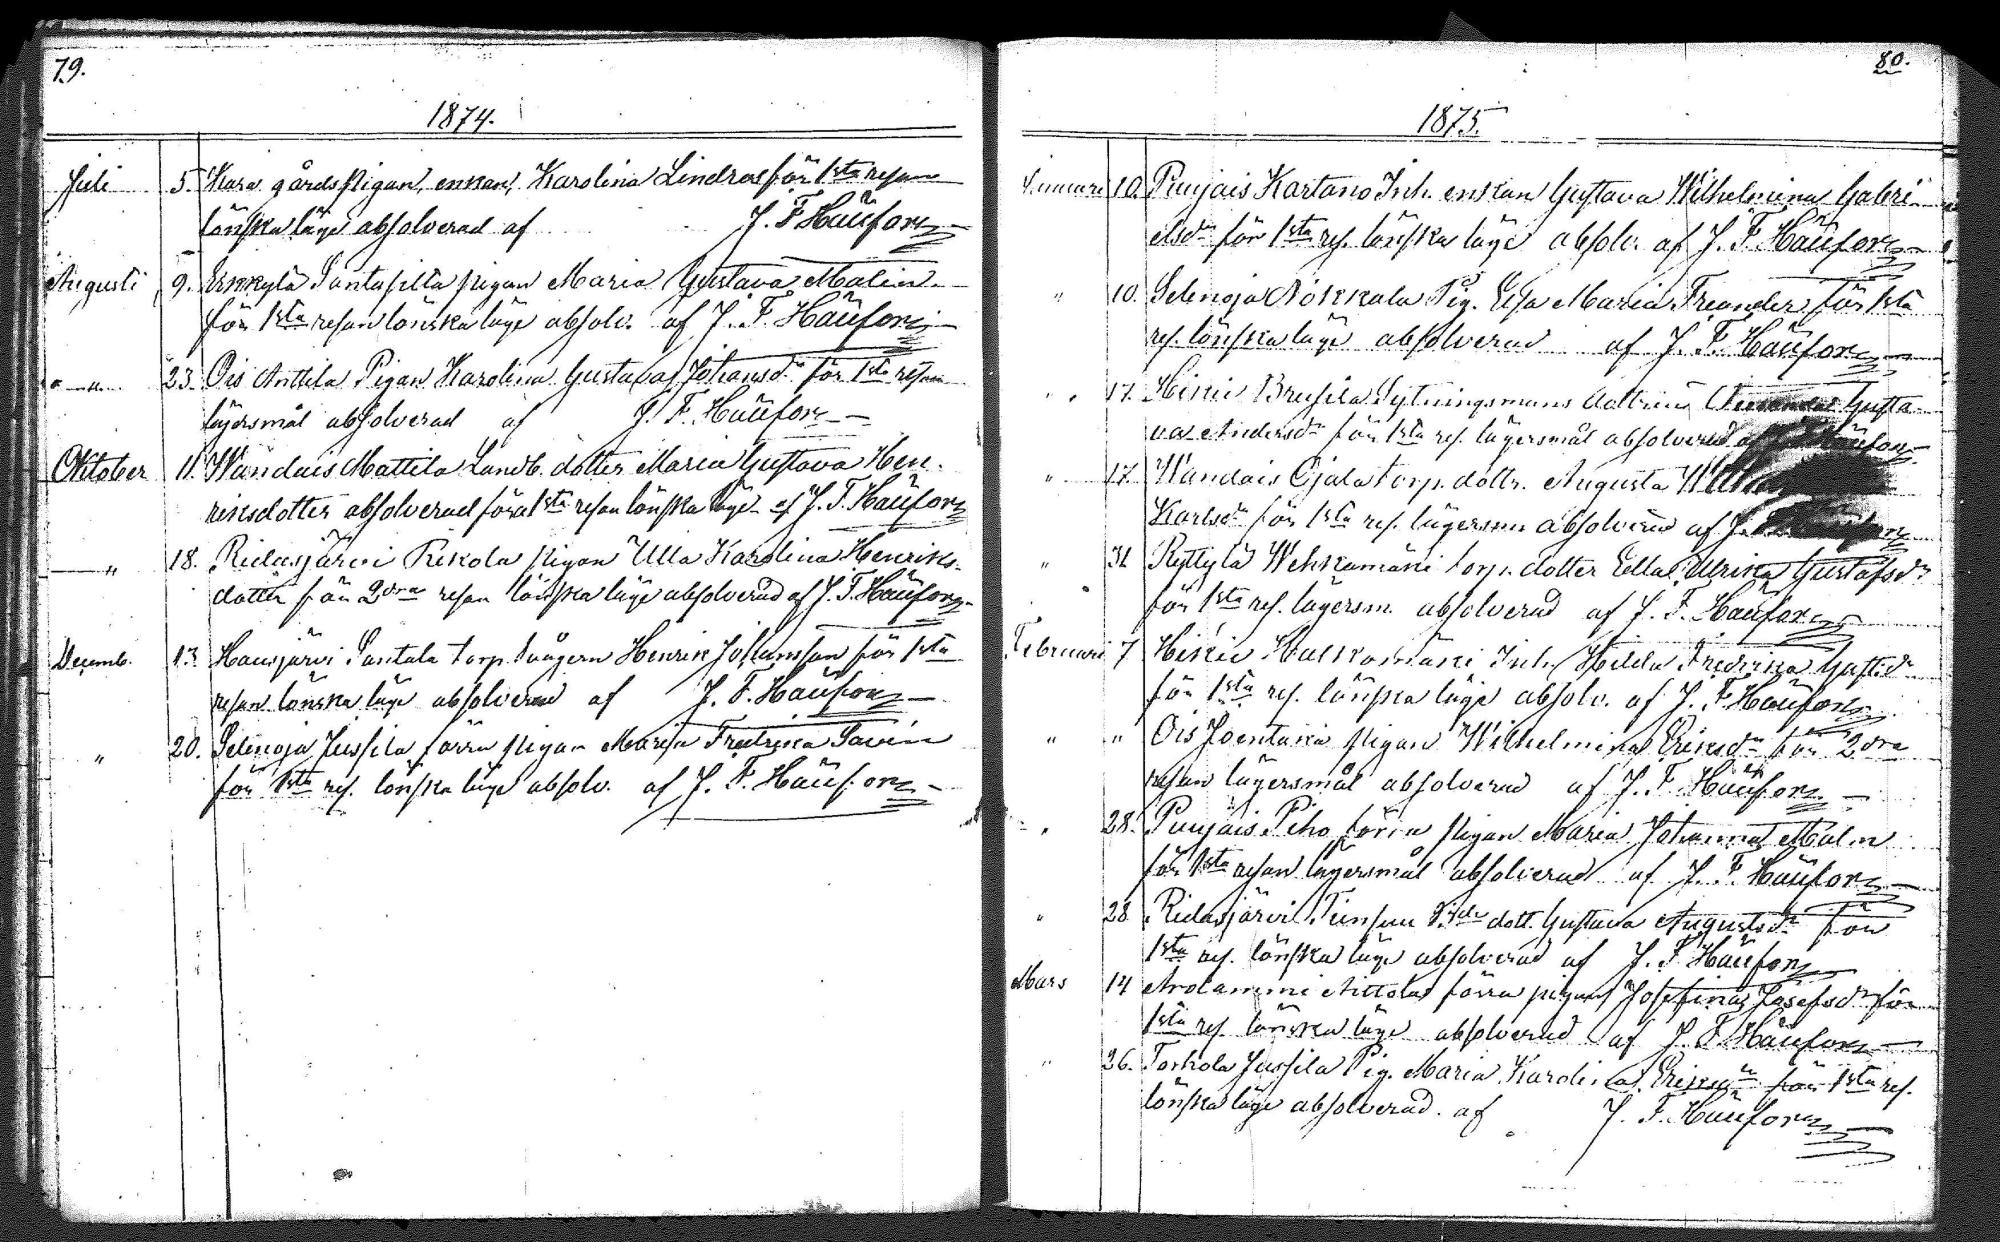 79.
1874.
Juli 5. Kara gårds pigan, enkan, Karolina Lindroos för 1sta resan
lönskaläge absolverad af J. F. Häüfors
Augusti 9. Erkkylä Santapilla pigan Maria Gustava Malin
för 1sta resan lönskaläge absolv. af J. F. Häüfors
" 23. Ois Anttila Pigan Karolina Gustava Johansdr för 1sta resan
lägersmål absolverad af J. F. Häüfors
Oktober 11. Wandais Mattila Landb. dotter Maria Gustava Hen-
riksdotter absolverad för 1sta resan lönskaläge af J. F. Häüfors
" 18. Ridasjärvi Rekola pigan Ulla Karolina Henriks-
dotter för 2dra resan lönskaläge absolverad af J. F. Häüfors
Decemb. 13. Hausjärvi Santala torp. svågern Henrik Johansson för 1sta
resan lönska läge absolverad af J. F. Häüfors
" 20. Selenoja Jussila förra pigan Maria Fredrika Savén
för 1sta res. lönskaläge absolv. af J. F. Häüfors
80.
1875.
Januari 10. Punjais Kartano Inh. enkan Gustava Wilhelmina Gabri-
elsdr för 1sta res. lönskaläge absolv. af J. F. Häüfors
" 10. Selenoja Nökkala Pig. Elsa Maria Freander för 1sta
res. lönskaläge absolverad af J. F. Häüfors
" 17. Hikiö Brusila Sytningsmans dottern Gusta-
va Andersdr för 1sta res. lägersmål absolverad af J. F. Häüfors
" 17. Wandais Ojala torp. dottr. Augusta
Karlsdr för 1sta res. lägersm absolverad af J. F. Häüfors
" 31 Ryttylä Wehkamäki torp. dotter Eella Ulrika Gustafsdr
för 1sta res. lägersm. absolverad af J. F. Häüfors
Februari 7 Hikiö Halkomäki Inh. Hilda Fredrika Gust.dr
för 1sta res. lönskaläge absolv. af J. F. Häüfors
" " Ois Joentaka pigan Wilhelmina Eriksdr för 2dra
resan lägersmål absolverad af J. F. Häüfors
" 28. Punjais Piho förra pigan Maria Johanna Malm
för 1sta resan lägersmål absolverad af J. F. Häüfors
" 28 Ridasjärvi dott. Gustava Augustsdr för
1sta res. lönskaläge absolverad af J. F. Häüfors
Mars 14 Arolammi Aittola förra pigan Josefina Josefsdr för
1sta res. lönskaläge absolverad af J. F. Häüfors
" 26. Torhola Jussila Pig. Maria Karolina Eriksdr för 1sta res.
lönskaläge absolverad. af J. F. Häüfors